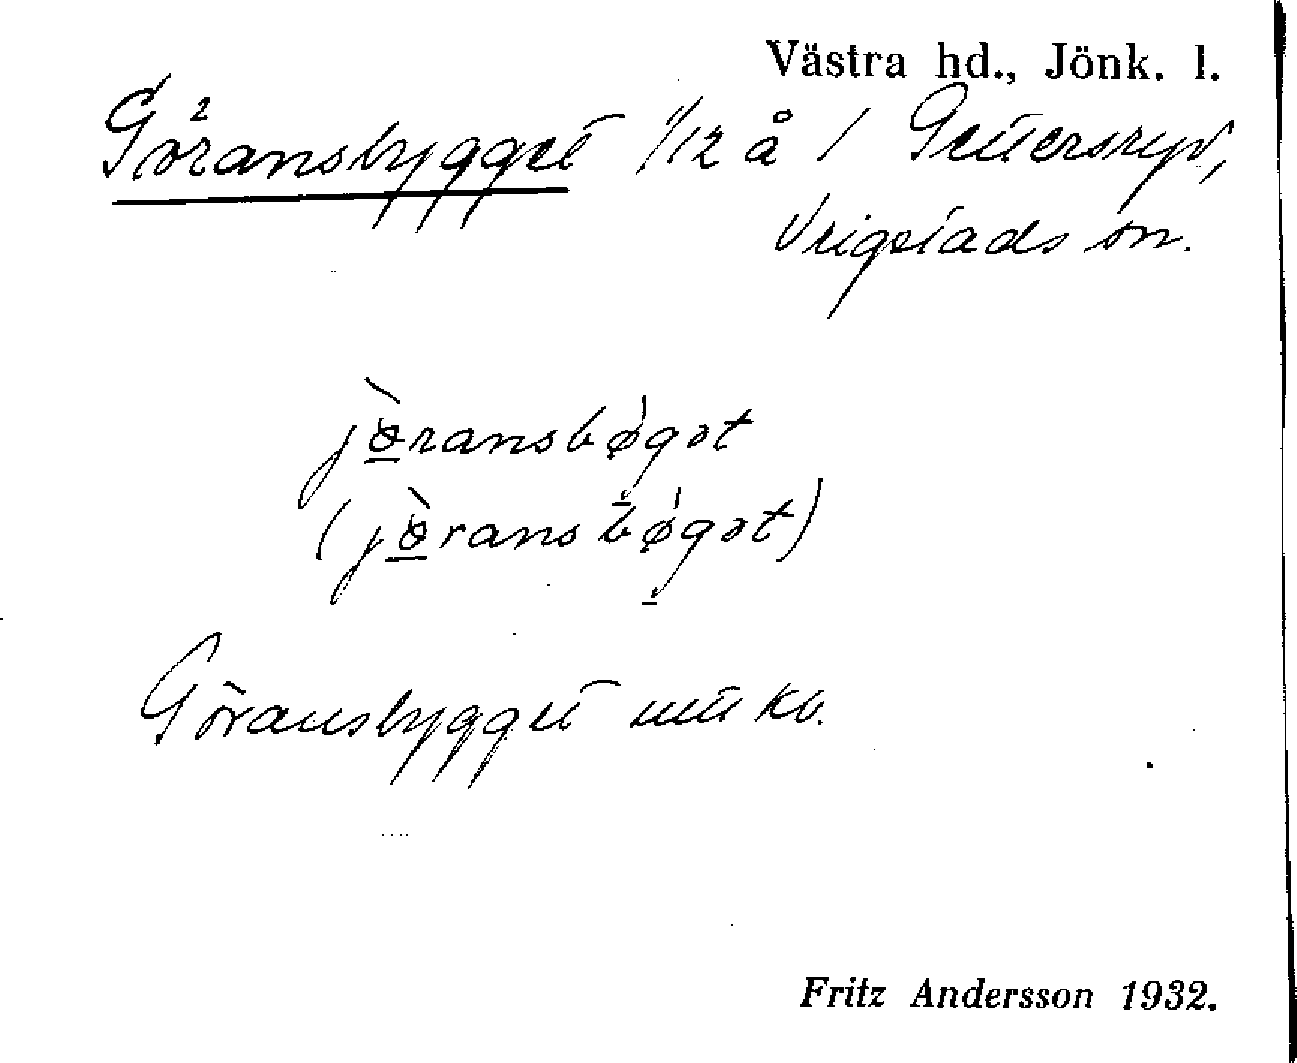 Västra hd., Jönk. l.
Göransbygget 1/12 å / Gettersryd,
Vrigstads sn.
jɵ̀ransbǿgət
(jɵ̀rans bǿgət)
Göransbygget utt kv.
Fritz Andersson 1932.